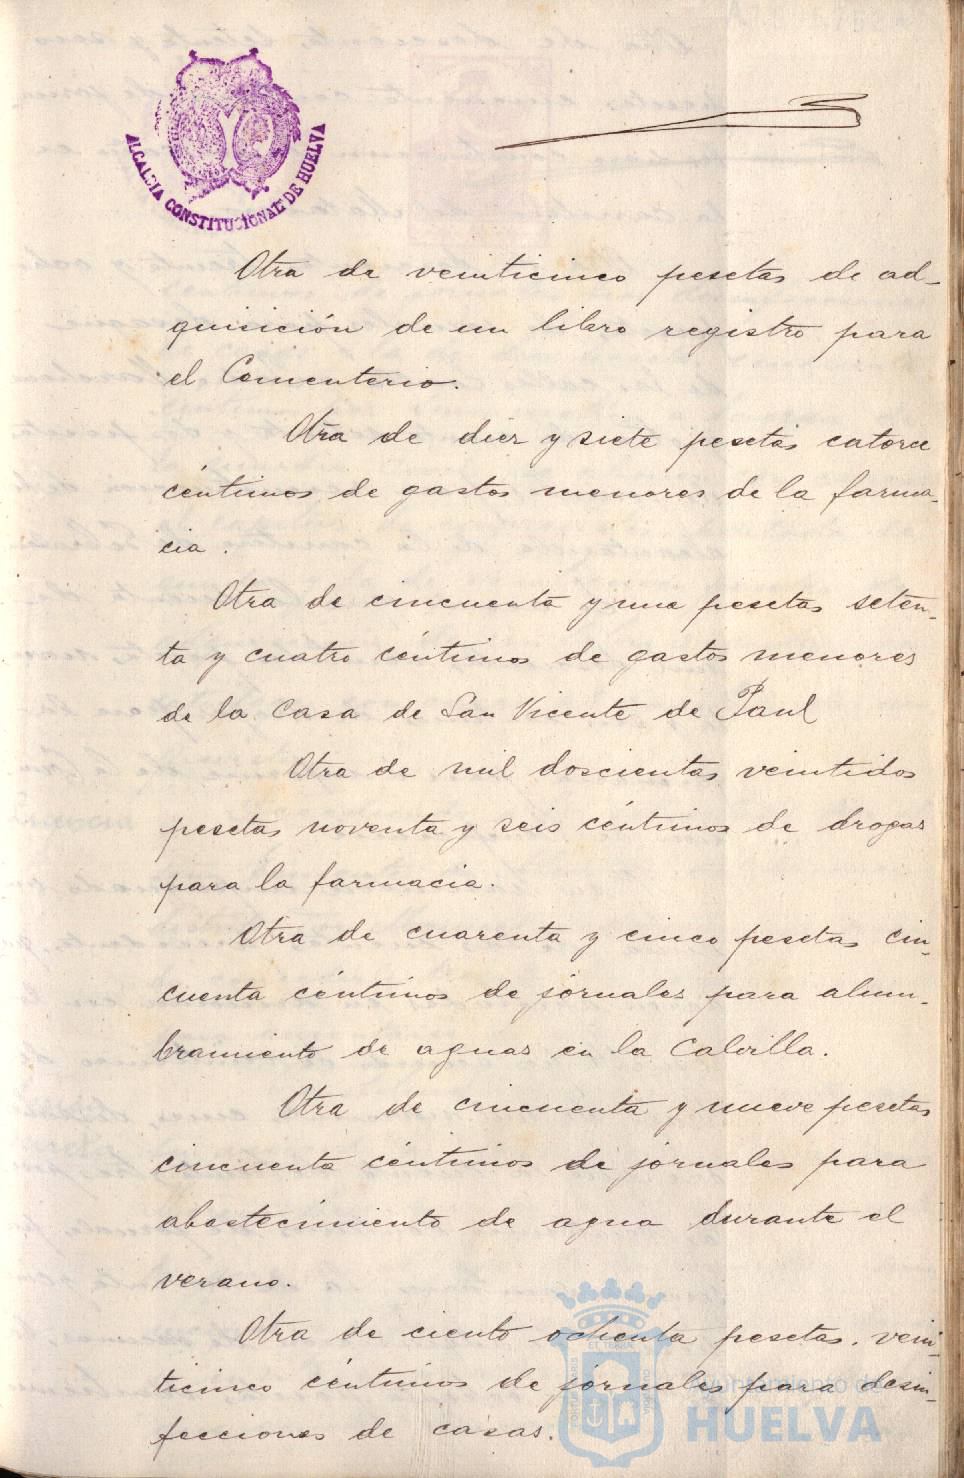 ALCALDIA CONSTITUCIONAL DE HUELVA
Otra de veinticinco pesetas de ad-
quisición de un libro registro para
el Cementerio.
Otra de diez y siete pesetas catorce
céntimos de gastos menores de la farma-
cia.
Otra de cincuenta y una pesetas seten-
ta y cuatro céntimos de gastos menores
de la Casa de San Vicente de Paul
Otra de mil doscientas veintidos
pesetas noventa y seis céntimos de drogas
para la farmacia.
Otra de cuarenta y cinco pesetas cin-
cuenta céntimos de jornales para alum-
bramiento de aguas en la Calvilla.
Otra de cincuenta y nueve pesetas
cincuenta céntimos de jornales para
abastecimiento de agua durante el
verano.
Otra de ciento ochenta pesetas, vein-
ticinco céntimos de jornales para desin-
fecciones de casas.
Ayuntamiento de
HUELVA